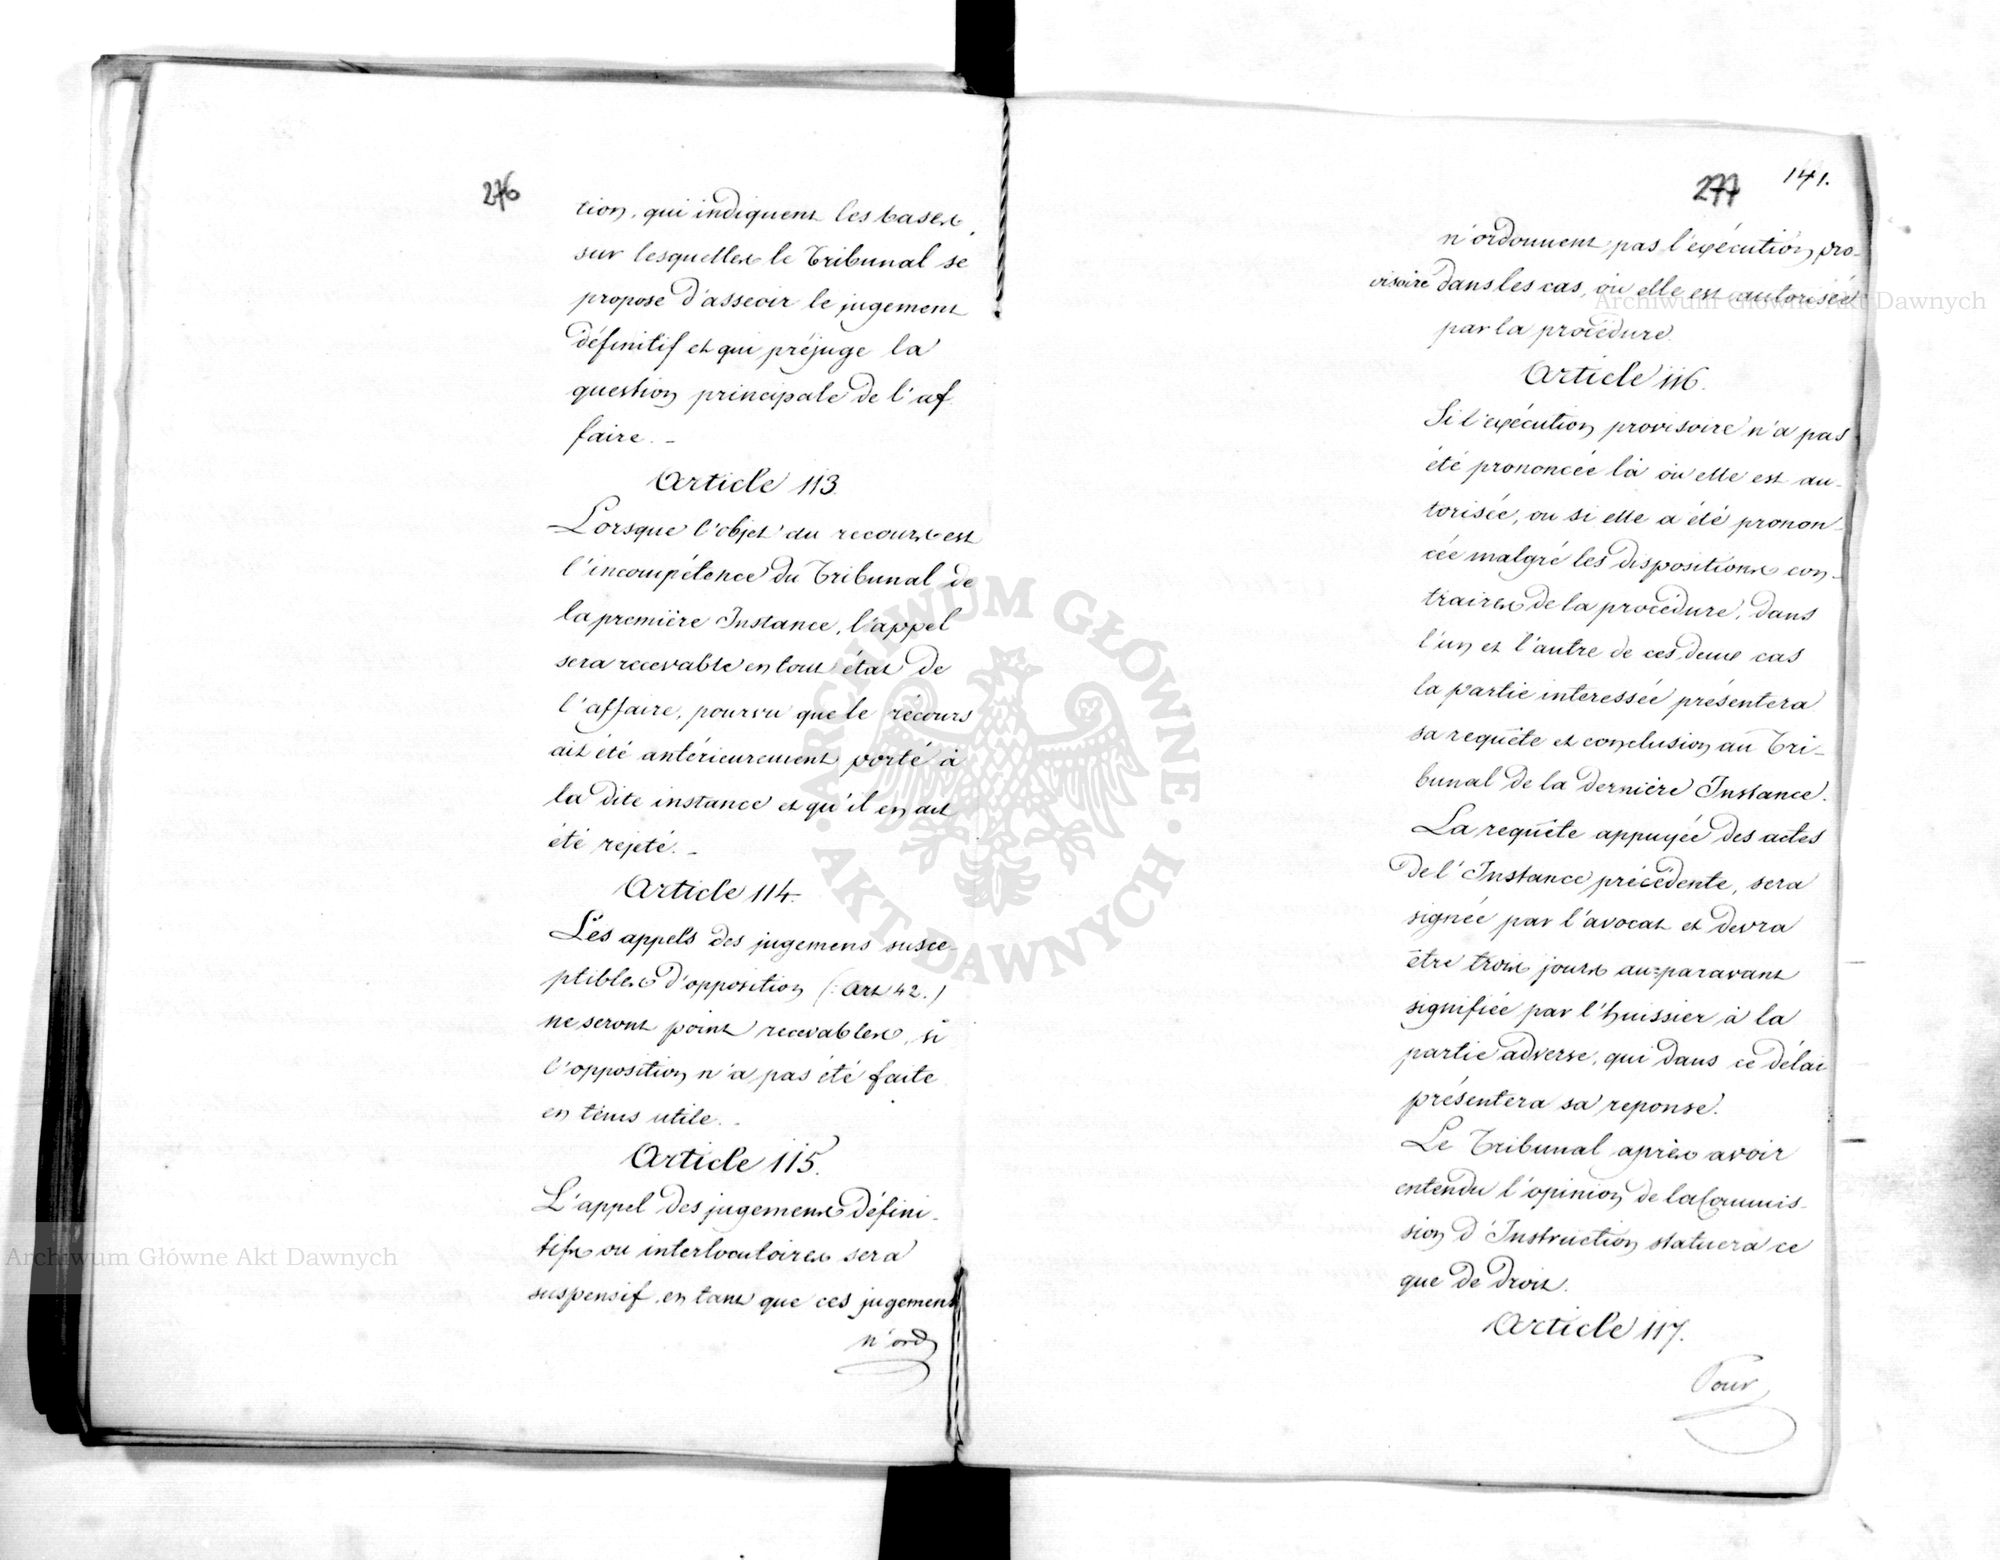 276
tion, qui indiquent les bases,
sur lesquelles le Tribunal se
propose d'asseoir le jugement
définitif et qui préjuge la
question principale de l'af
faire. -
Article 113.
Lorsque l'objet du recours est
l'incompétence du Tribunal de
la première Instance, l'appel
sera recevable en tout état de
l'affaire, pourvu que le récours
ait été antérieurement porté à
la dite instance et qu'il en ait
été rejeté. -
Article 114.
Les appels des jugemens susce-
ptibles d'opposition (: Art 42.)
ne seront point recevables, si
l'opposition n'a pas été faite
en tems utile. -
Article 115.
L'appel des jugemens défini-
tifs ou interlocutoires sera
suspensif, en tant que ces jugemens
n'ord
277
141.
n'ordonnent pas l'exécution pro-
visoire dans les cas, où elle est autorisée
par la procédure.
Article 116.
Si l'exécution provisoire n'a pas
été prononcée là où elle est au-
torisée, ou si elle a été pronon-
cée malgré les dispositions con-
traires de la procédure, dans
l'un et l'autre de ces deux cas
la partie interessée présentera
sa requête et conclusion au Tri-
bunal de la dernière Instance.
La requête appuyée des actes
de l'Instance précédente, sera
signée par l'avocat et devra
être trois jours au=paravant
signifiée par l'huissier à la
partie adverse, qui dans ce délai
présentera sa reponse.
Le Tribunal après avoir
entendu l'opinion de la Commis-
sion d'Instruction statuera ce
que de droit.
Article 117.
Pour
Archiwum Główne Akt Dawnych
Archiwum Główne Akt Dawnych
ARCHIWUM GŁÓWNE · AKT DAWNYCH ·